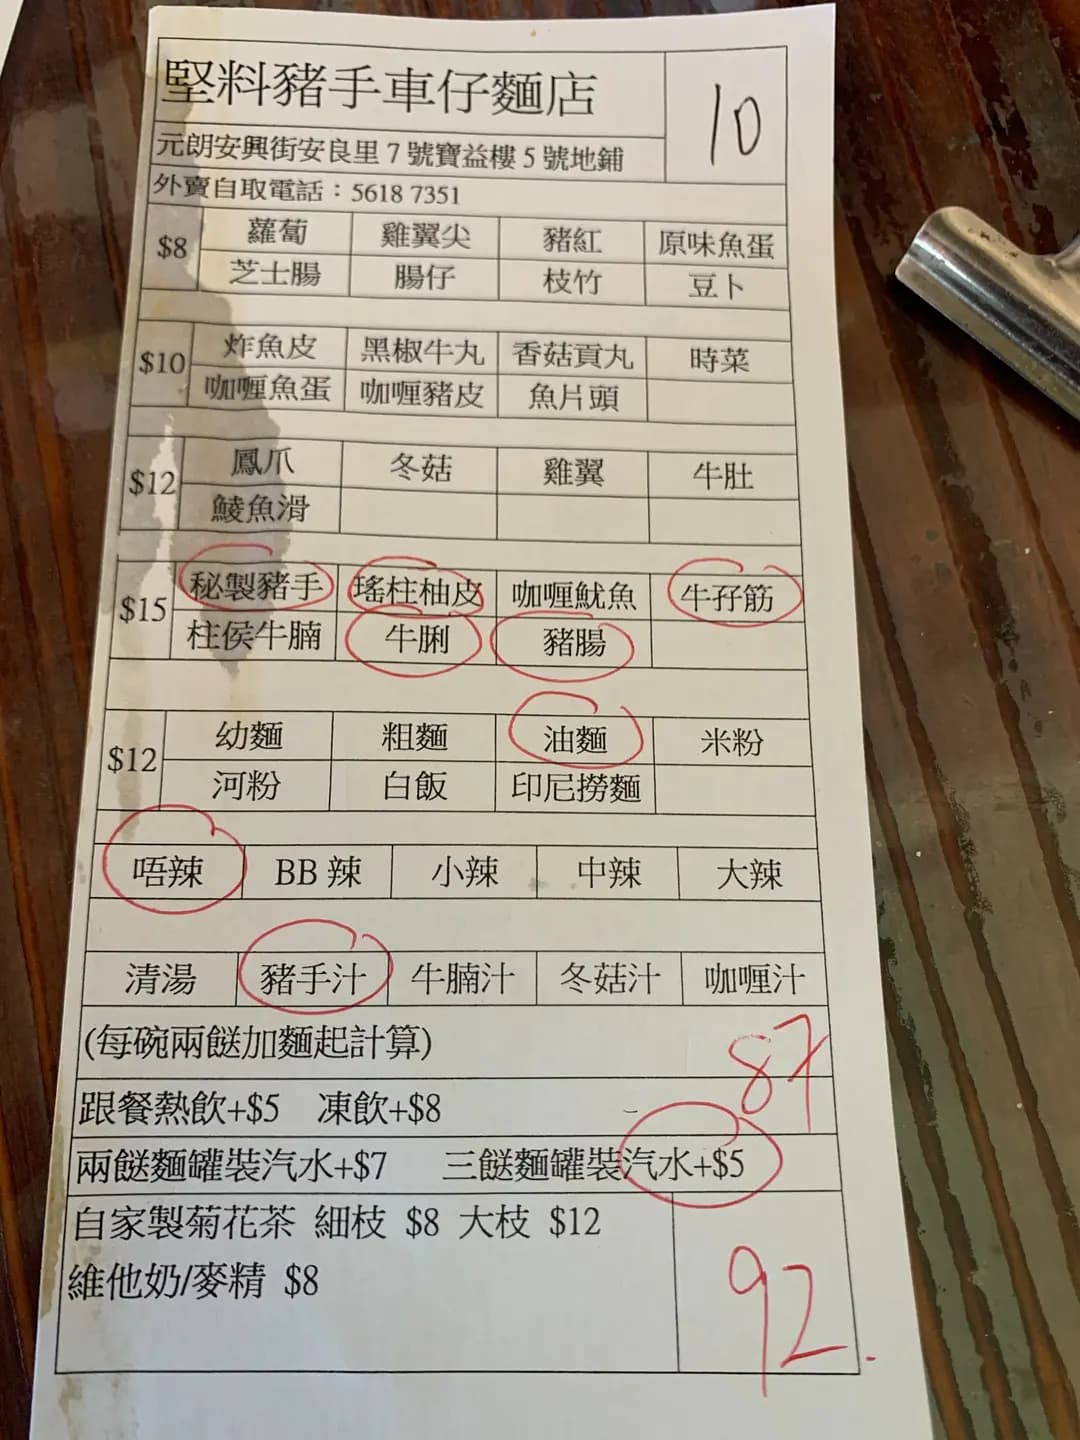 堅料豬手車仔麵店
10
元朗安興街安良里 7 號寶益樓 5 號地鋪
外賣自取電話：5618 7351
$8 蘿蔔 雞翼尖 豬紅 原味魚蛋
芝士腸 腸仔 枝竹 豆卜
$10 炸魚皮 黑椒牛丸 香菇貢丸 時菜
咖喱魚蛋 咖喱豬皮 魚片頭
$12 鳳爪 冬菇 雞翼 牛肚
鯪魚滑
$15 秘製豬手 瑤柱柚皮 咖喱魷魚 牛孖筋
柱侯牛腩 牛脷 豬腸
$12 幼麵 粗麵 油麵 米粉
河粉 白飯 印尼撈麵
唔辣 BB 辣 小辣 中辣 大辣
清湯 豬手汁 牛腩汁 冬菇汁 咖喱汁
(每碗兩餸加麵起計算)
87
跟餐熱飲+$5 凍飲+$8
兩餸麵罐裝汽水+$7 三餸麵罐裝汽水+$5
自家製菊花茶 細枝 $8 大枝 $12
維他奶/麥精 $8
92.